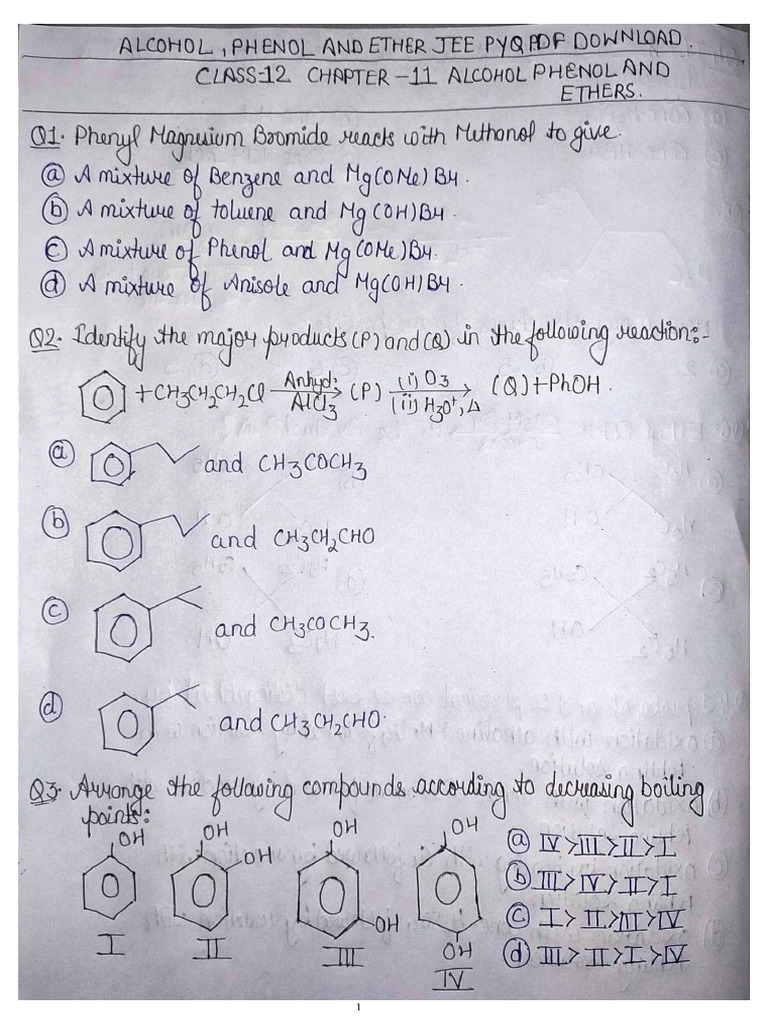 ALCOHOL, PHENOL AND ETHER JEE PYQ PDF DOWNLOAD.
CLASS-12 CHAPTER-11 ALCOHOL PHENOL AND
ETHERS.
Q1. Phenyl Magnesium Bromide reacts with Methanol to give.
(a) A mixture of Benzene and Mg(OMe)Br.
(b) A mixture of toluene and Mg(OH)Br.
(c) A mixture of Phenol and Mg(OMe)Br.
(d) A mixture of Anisole and Mg(OH)Br.
Q2. Identify the major products (P) and (Q) in the following reaction:-
+CH3CH2CH2Cl Anhyd: AlCl3 (P) (i) O3 (ii) H3O+, Δ (Q)+PhOH.
(a) and CH3COCH3
(b) and CH3CH2CHO
(c) and CH3COCH3.
(d) and CH3CH2CHO.
Q3. Arrange the following compounds according to decreasing boiling
points:
OH OH OH OH OH OH OH
I II III IV
(a) IV>III>II>I
(b) III>IV>II>I
(c) I>II>III>IV
(d) III>II>I>IV
1